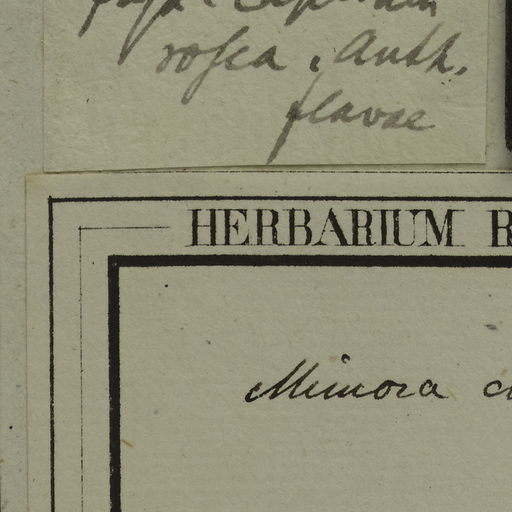 rosea, Anth.
flavae
HERBARIUM R
Mimosa c